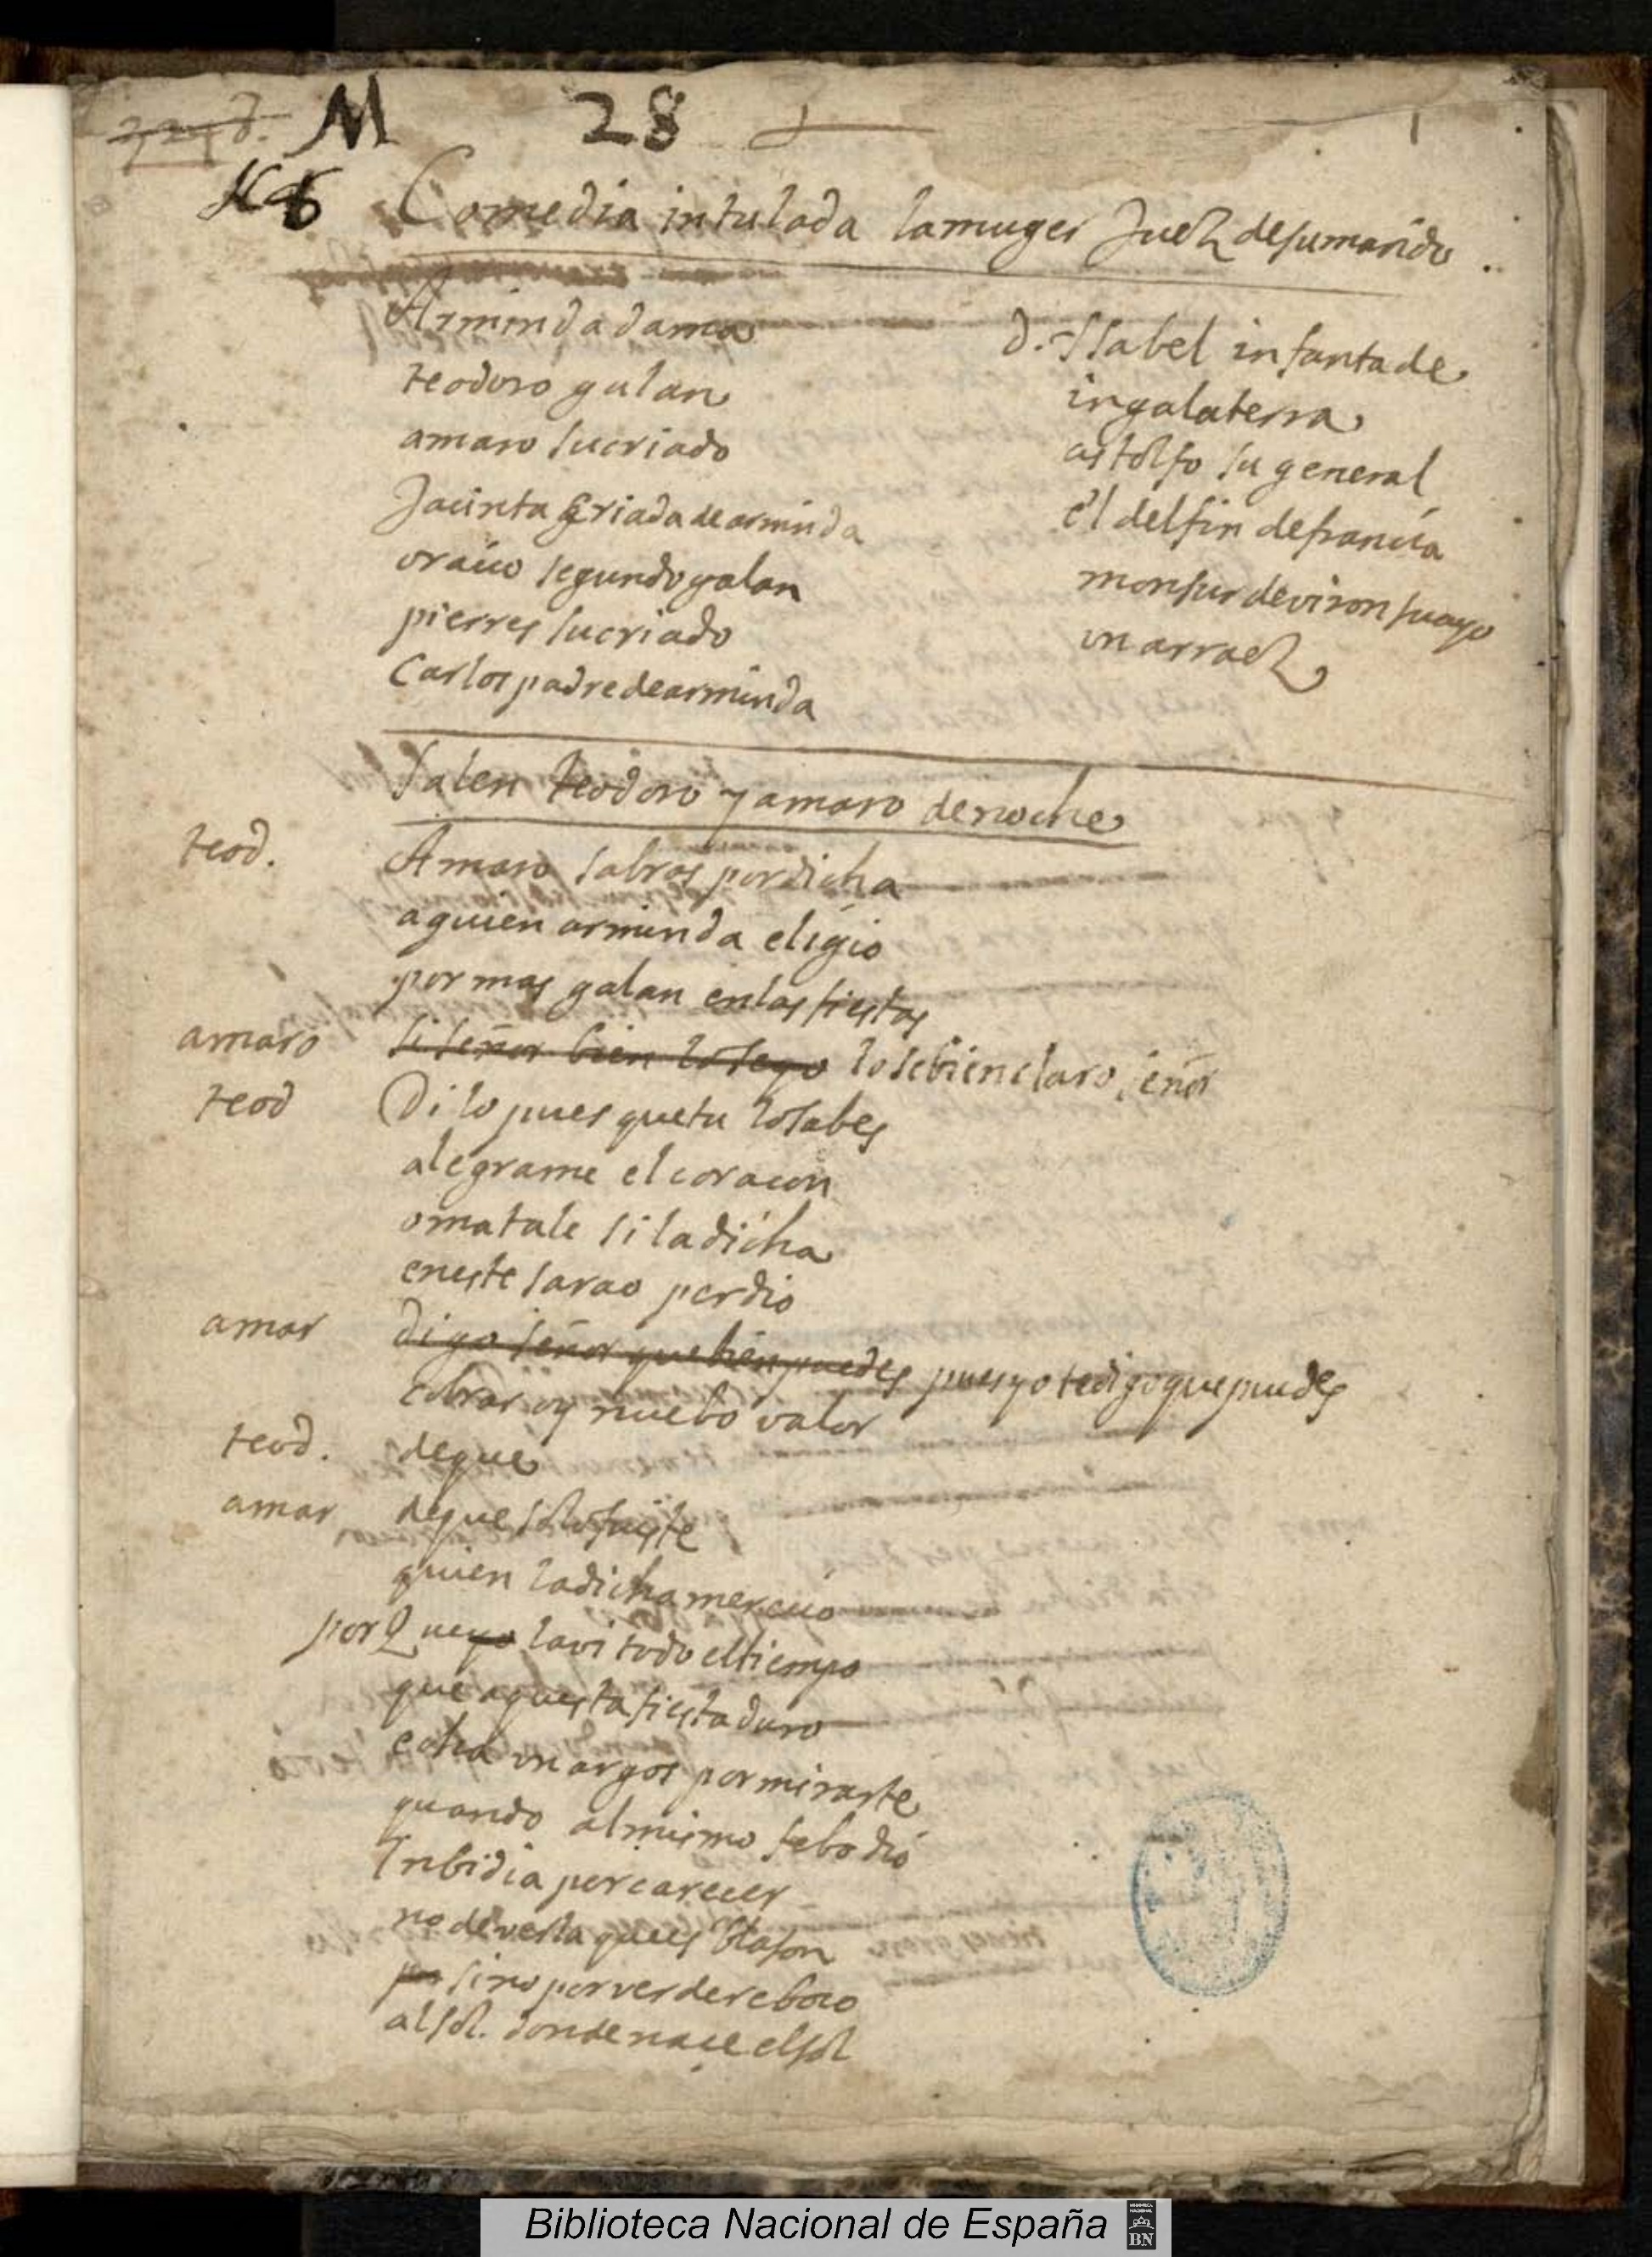 M 28 1
Comedia intulada lamuger Juez desumarido
Arminda dama
teodoro galan
amaro sucriado
Jacinta criada de arminda
oracio segundo galan
pierres sucriado
Carlos padre dearminda
D. Isabel infanta de
ingalaterra
astolfo su general
el delfin defrancia
monsur deviron suayo
un arraez
Salen teodoro y amaro denoche
teod. Amaro sabras pordicha
aquien arminda eligio
por mas galan enlas fiestas
amaro si señor bien lo se yo lo sebien claro señor
teod Di lo pues quetu lo sabes
alegrame el coracon
omatale si la dicha
eneste sarao perdio
amar digo señor que bien puedes pues yo te digo que puedes
cobrar oy nuebo valor
teod. deque
amar deque solo fuiste
quien ladicha merecio
porQue yo lavi todo eltiempo
que aquesta fiesta duro
echa un argos por mirarte
quando almismo febo dio
Inbidia por carecer
no de vella ques blason
sino por ver de reboco
al sol. donde nace el sol
Biblioteca Nacional de España
BN